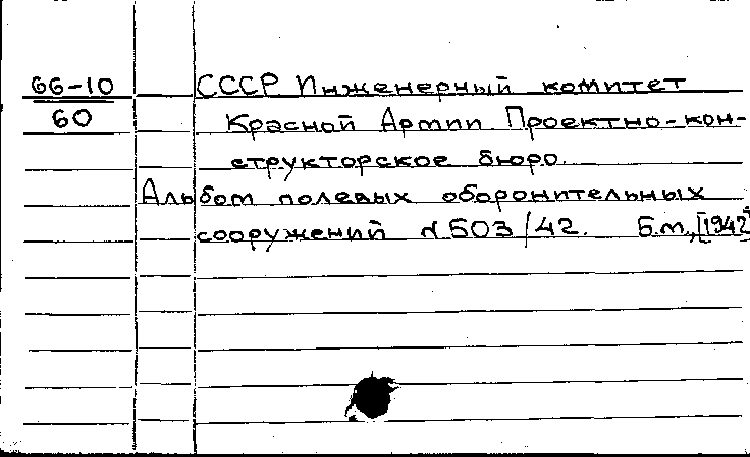 66-10 СССР Инженерный комитет
60 Красной Армии. Проектно-кон-
структорское бюро.
Альбом полевых оборонительных
сооружений 503/42. Б.м., [1942]